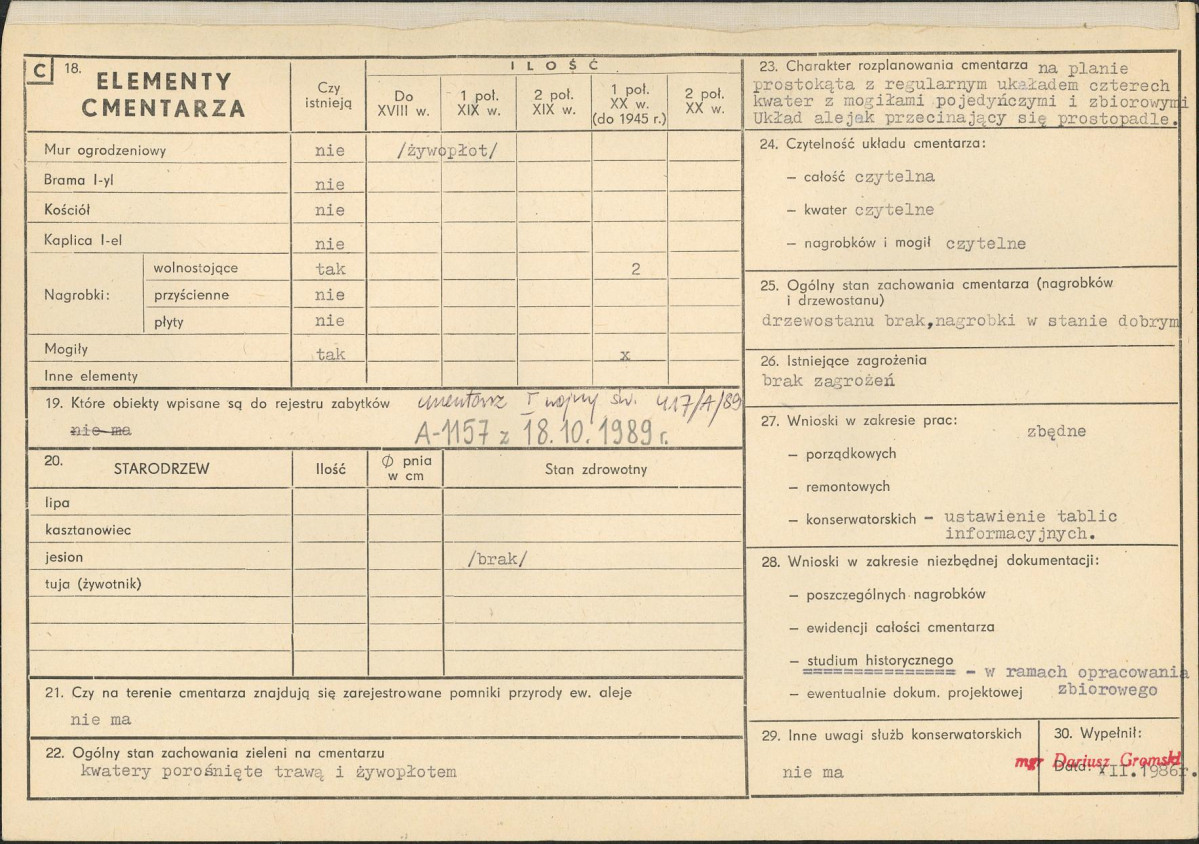 C 18. ELEMENTY CMENTARZA
Czy istnieją
ILOŚĆ
Do XVIII w.
1 poł. XIX w.
2 poł. XIX w.
1 poł. XX w. (do 1945 r.)
2 poł. XX w.
Mur ogrodzeniowy nie /żywopłot/
Brama I-yl nie
Kościół nie
Kaplica I-el nie
Nagrobki: wolnostojące tak 2
przyścienne nie
płyty nie
Mogiły tak x
Inne elementy
19. Które obiekty wpisane są do rejestru zabytków cmentarz I wojny św. 417/A/89
nie ma A-1157 z 18.10.1989 r.
20. STARODRZEW Ilość Ø pnia w cm Stan zdrowotny
lipa
kasztanowiec
jesion /brak/
tuja (żywotnik)
21. Czy na terenie cmentarza znajdują się zarejestrowane pomniki przyrody ew. aleje
nie ma
22. Ogólny stan zachowania zieleni na cmentarzu
kwatery porośnięte trawą i żywopłotem
23. Charakter rozplanowania cmentarza na planie
prostokąta z regularnym układem czterech
kwater z mogiłami pojedyńczymi i zbiorowymi
Układ alejek przecinający się prostopadle.
24. Czytelność układu cmentarza:
— całość czytelna
— kwater czytelne
— nagrobków i mogił czytelne
25. Ogólny stan zachowania cmentarza (nagrobków
i drzewostanu)
drzewostanu brak, nagrobki w stanie dobrym
26. Istniejące zagrożenia
brak zagrożeń
27. Wnioski w zakresie prac: zbędne
— porządkowych
— remontowych
— konserwatorskich — ustawienie tablic
informacyjnych.
28. Wnioski w zakresie niezbędnej dokumentacji:
— poszczególnych nagrobków
— ewidencji całości cmentarza
— studium historycznego - w ramach opracowania
— ewentualnie dokum. projektowej zbiorowego
29. Inne uwagi służb konserwatorskich
nie ma
30. Wypełnił:
mgr Dariusz Gromski
Data: XII.1986r.